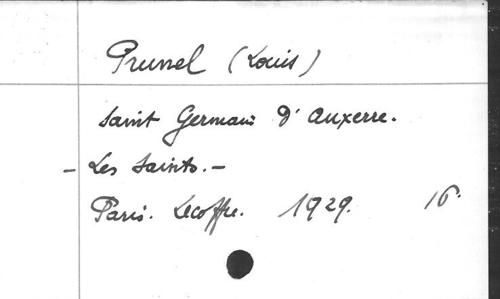 Prunel (Louis)
Saint Germain d'Auxerre.
- Les Saints. -
Paris. Lecoffre. 1929. 16.